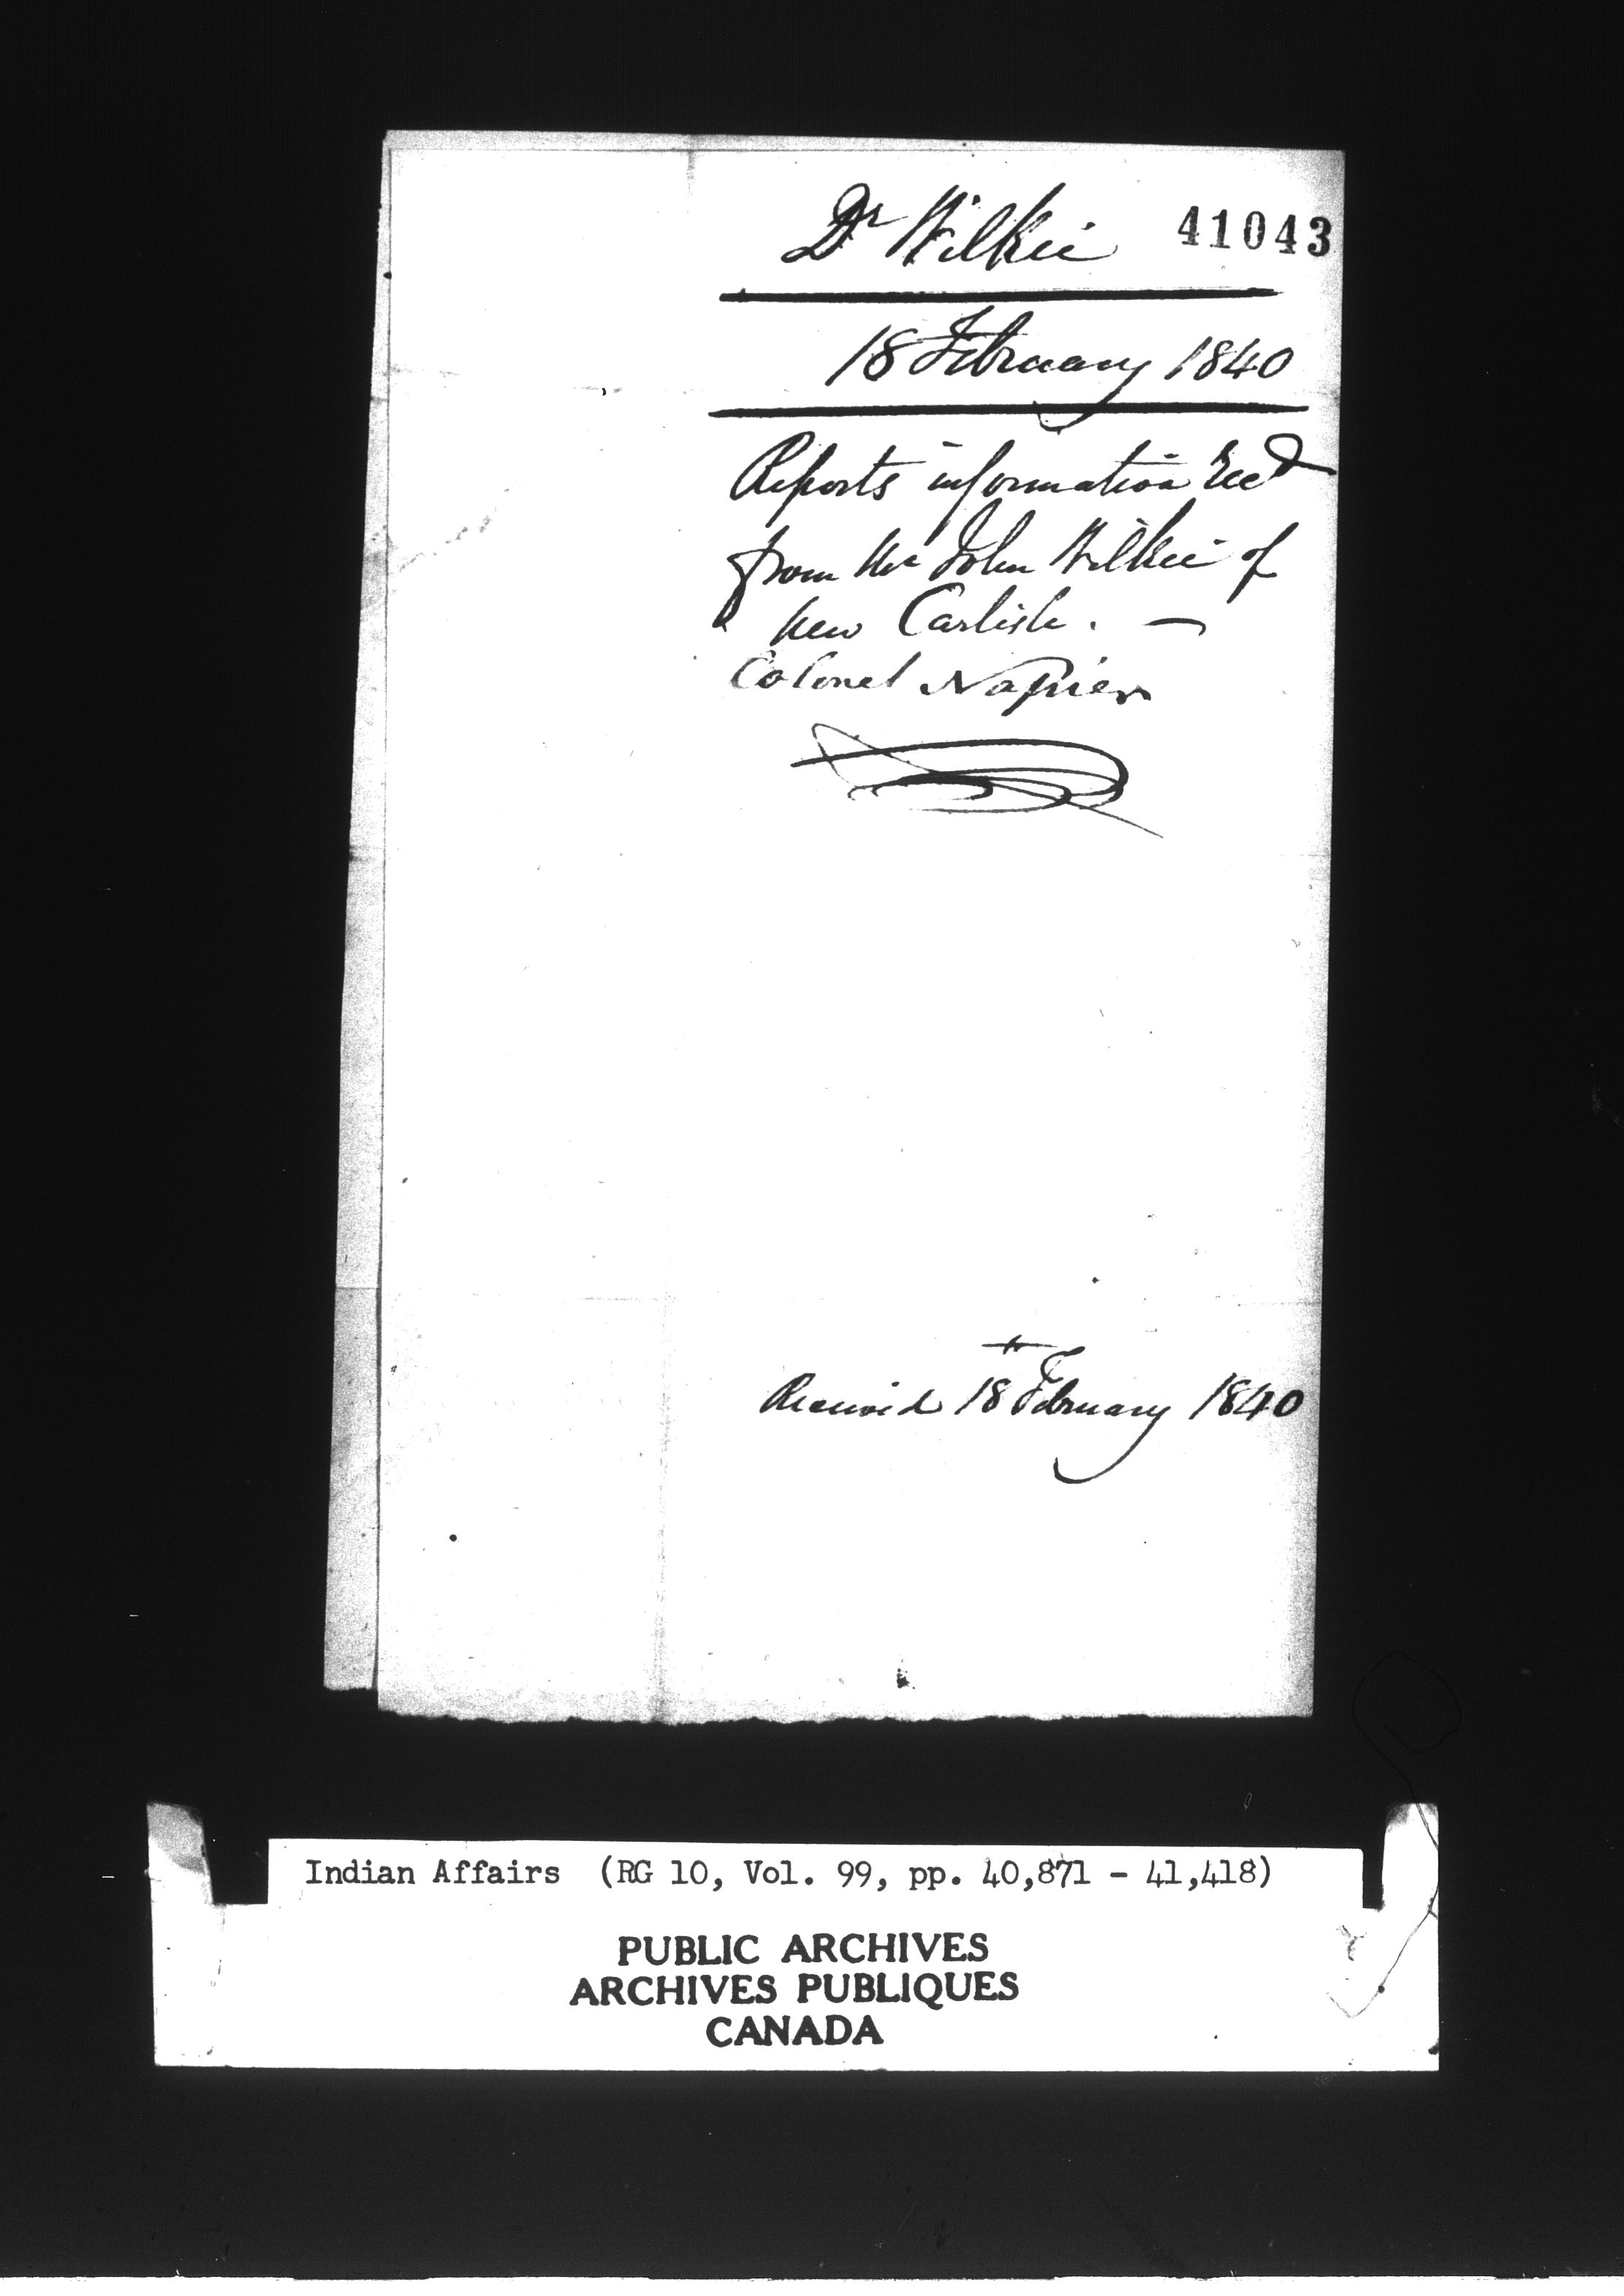 Dr Wilkie 41043
18 February 1840
Reports information Recd
from Mr John Wilkie of
New Carlisle. —
Colonel Napier
Received 18th February 1840
Indian Affairs (RG 10, Vol. 99, pp. 40,871 - 41,418)
PUBLIC ARCHIVES
ARCHIVES PUBLIQUES
CANADA